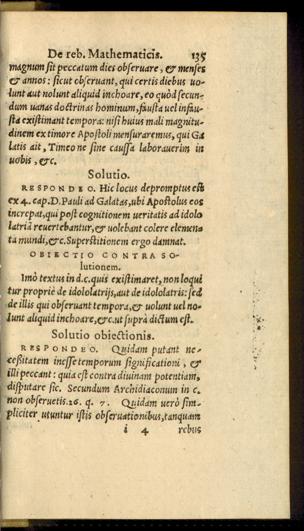 De reb. Mathematicis. 135
magnum sit peccatum dies obseruare, & menses
& annos: sicut obseruant, qui certis diebus uo-
lunt aut nolunt aliquid inchoare, eo quòd secun-
dum uanas doctrinas hominum, fausta uel infau-
sta existimant tempora: nisi huius mali magnitu-
dinem ex timore Apostoli mensuraremus, qui Ga
latis ait, Timeo ne sine caussa laborauerim in
uobis, &c.
Solutio.
RESPONDEO. Hic locus depromptus est
ex 4. cap. D. Pauli ad Galatas, ubi Apostolus eos
increpat, qui post cognitionem ueritatis ad idolo
latriā reuertebantur, & uolebant colere elemen-
ta mundi, &c. Superstitionem ergo damnat.
OBIECTIO CONTRA SO-
lutionem.
Imò textus in d. c. quis existimaret, non loqui
tur propriè de idololatrijs, aut de idololatris: sed
de illis qui obseruant tempora, & uolunt uel no-
lunt aliquid inchoare, &c. ut suprà dictum est.
Solutio obiectionis.
RESPONDEO. Quidam putant ne-
cessitatem inesse temporum significationi, &
illi peccant: quia est contra diuinam potentiam,
disputare sic. Secundum Archidiaconum in c.
non obseruetis. 26. q. 7. Quidam uerò sim-
pliciter utuntur istis obseruationibus, tanquam
i 4 rebus